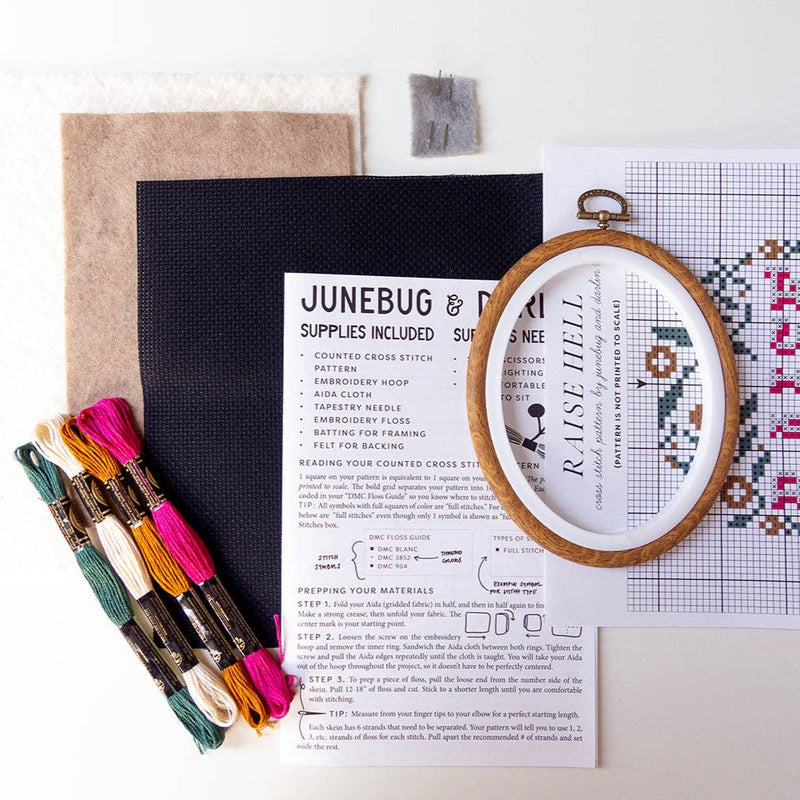 JUNEBUG &
SUPPLIES INCLUDED
• COUNTED CROSS STITCH
PATTERN
• EMBROIDERY HOOP
• AIDA CLOTH
• TAPESTRY NEEDLE
• EMBROIDERY FLOSS
• BATTING FOR FRAMING
• FELT FOR BACKING
SCISSORS
TO SIT
READING YOUR COUNTED CROSS STITCH PATTERN
1 square on your pattern is equivalent to 1 square on your
printed to scale. The bold grid separates your pattern into
coded in your "DMC Floss Guide" so you know where to stitch
TIP: All symbols with full squares of color are "full stitches." For
below are "full stitches" even though only 1 symbol is shown as
Stitches box.
STITCH SYMBOLS
DMC FLOSS GUIDE
■ DMC BLANC
- DMC 3852
■ DMC 904
THREAD COLORS
TYPES OF
■ FULL STITCH
EXAMPLE SYMBOL
FOR STITCH TYPE
PREPPING YOUR MATERIALS
STEP 1. Fold your Aida (gridded fabric) in half, and then in half again to
Make a strong crease, then unfold your fabric. The
center mark is your starting point.
STEP 2. Loosen the screw on the embroidery
hoop and remove the inner ring. Sandwich the Aida cloth between both rings. Tighten the
screw and pull the Aida edges repeatedly until the cloth is taught. You will take your Aida
out of the hoop throughout the project, so it doesn't have to be perfectly centered.
STEP 3. To prep a piece of floss, pull the loose end from the number side of the
skein. Pull 12-18" of floss and cut. Stick to a shorter length until you are comfortable
with stitching.
TIP: Measure from your finger tips to your elbow for a perfect starting length.
Each skein has 6 strands that need to be separated. Your pattern will tell you to use 1, 2,
3, etc. strands of floss for each stitch. Pull apart the recommended # of strands and set
aside the rest.
RAISE HELL
cross stitch pattern by junebug and darlin
(PATTERN IS NOT PRINTED TO SCALE)